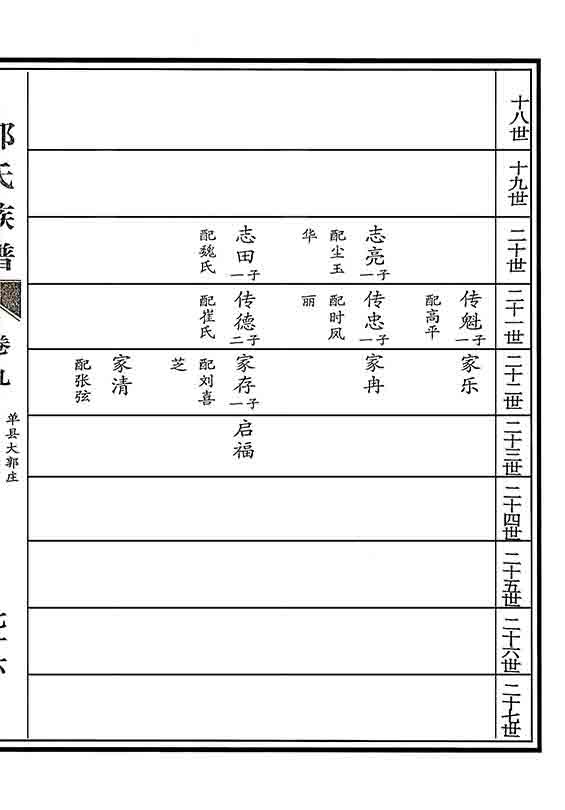 十八世
十九世
二十世
志亮
一子
配尘玉
华
志田
一子
配魏氏
二十一世
传魁
一子
配高平
传忠
一子
配时凤
丽
传德
二子
配崔氏
二十二世
家乐
家冉
家存
一子
配刘喜
芝
家清
配张弦
二十三世
启福
二十四世
二十五世
二十六世
二十七世
氏族谱
卷九
单县大郭庄